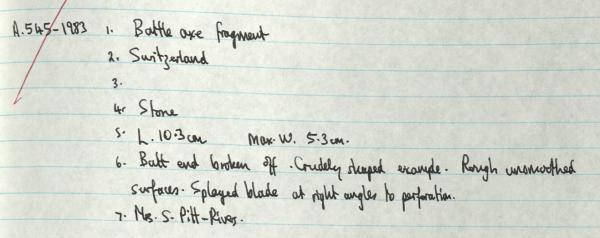 A.545-1983 1. Battle axe fragment
2. Switzerland
3.
4. Stone
5. L. 10.3cm Max. W. 5.3cm.
6. Butt end broken off. Crudely shaped example. Rough unsmoothed
surfaces. Splayed blade at right angles to perforation.
7. Mrs. S. Pitt-Rivers.